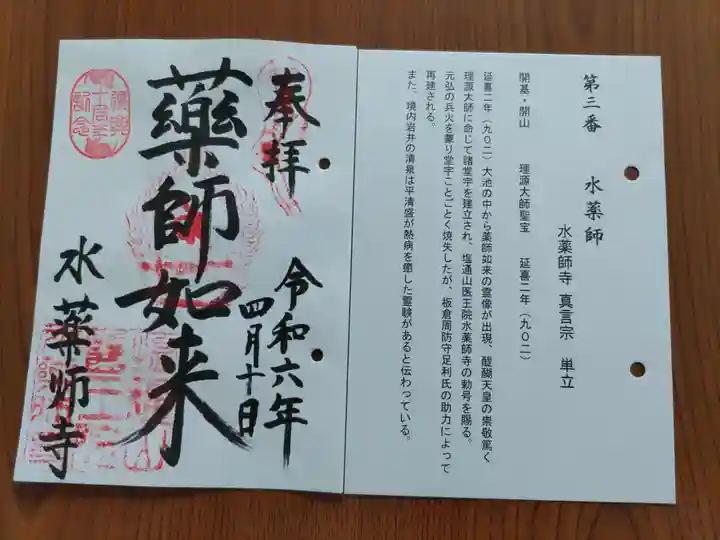 第三番　水薬師
水薬師寺　真言宗　単立
開基・開山　理源大師聖宝　延喜二年（九〇二）
延喜二年（九〇二）大池の中から薬師如来の霊像が出現、醍醐天皇の崇敬篤く
理源大師に命じて諸堂宇を建立され、塩通山医王院水薬師寺の勅号を賜る。
元弘の兵火を蒙り堂宇ことごとく焼失したが、板倉周防守足利氏の助力によって
再建される。
また、境内岩井の清泉は平清盛が熱病を癒した霊験があると伝わっている。
奉拝
令和六年
四月十日
藥師如来
水薬师寺
復興
十周年
記念